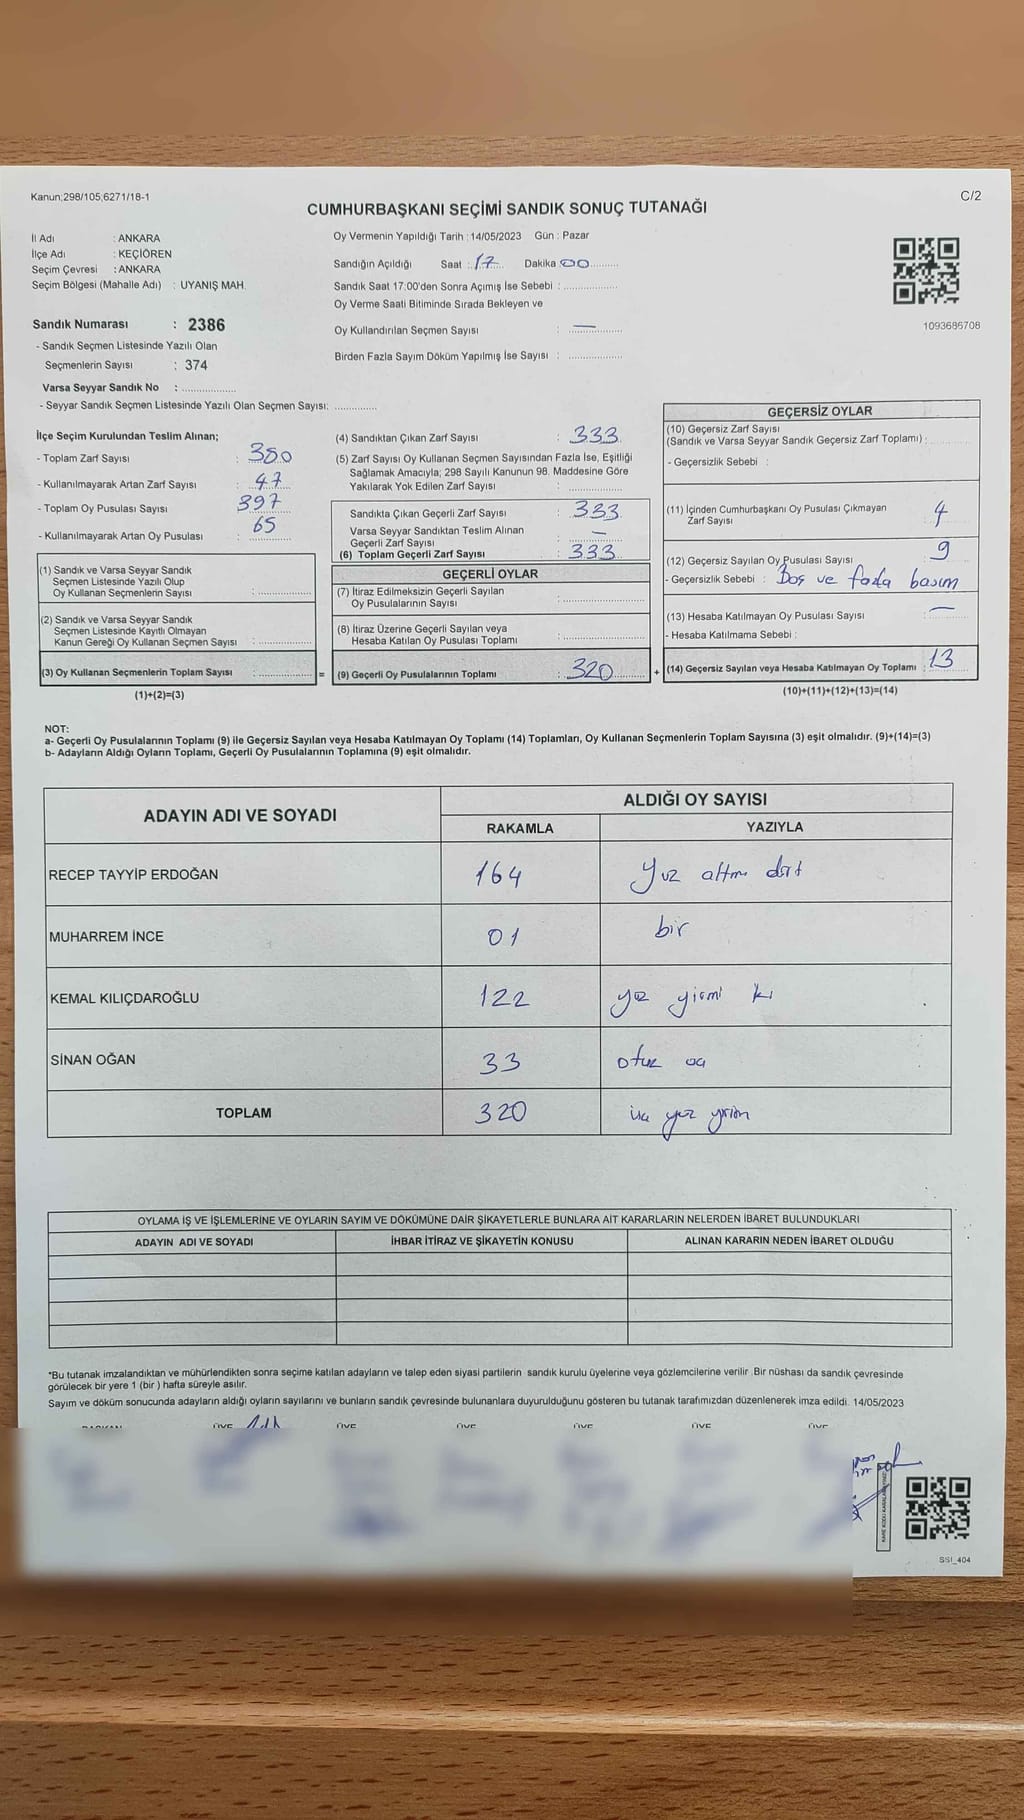 Kanun;298/105;6271/18-1
C/2
CUMHURBAŞKANI SEÇİMİ SANDIK SONUÇ TUTANAĞI
İl Adı : ANKARA
İlçe Adı : KEÇİÖREN
Seçim Çevresi : ANKARA
Seçim Bölgesi (Mahalle Adı) : UYANIŞ MAH.
Sandık Numarası : 2386
- Sandık Seçmen Listesinde Yazılı Olan
Seçmenlerin Sayısı : 374
Varsa Seyyar Sandık No : ..................
- Seyyar Sandık Seçmen Listesinde Yazılı Olan Seçmen Sayısı: ..............
Oy Vermenin Yapıldığı Tarih : 14/05/2023 Gün : Pazar
Sandığın Açıldığı Saat : 17 Dakika 00
Sandık Saat 17:00'den Sonra Açımış İse Sebebi :
Oy Verme Saati Bitiminde Sırada Bekleyen ve
Oy Kullandırılan Seçmen Sayısı : —
Birden Fazla Sayım Döküm Yapılmış İse Sayısı :
1093686708
İlçe Seçim Kurulundan Teslim Alınan;
- Toplam Zarf Sayısı : 380
- Kullanılmayarak Artan Zarf Sayısı : 47
- Toplam Oy Pusulası Sayısı : 397
- Kullanılmayarak Artan Oy Pusulası : 65
(1) Sandık ve Varsa Seyyar Sandık
Seçmen Listesinde Yazılı Olup
Oy Kullanan Seçmenlerin Sayısı :
(2) Sandık ve Varsa Seyyar Sandık
Seçmen Listesinde Kayıtlı Olmayan
Kanun Gereği Oy Kullanan Seçmen Sayısı :
(3) Oy Kullanan Seçmenlerin Toplam Sayısı :
(1)+(2)=(3)
=
(4) Sandıktan Çıkan Zarf Sayısı : 333
(5) Zarf Sayısı Oy Kullanan Seçmen Sayısından Fazla İse, Eşitliği
Sağlamak Amacıyla; 298 Sayılı Kanunun 98. Maddesine Göre
Yakılarak Yok Edilen Zarf Sayısı :
Sandıkta Çıkan Geçerli Zarf Sayısı : 333
Varsa Seyyar Sandıktan Teslim Alınan
Geçerli Zarf Sayısı : —
(6) Toplam Geçerli Zarf Sayısı : 333
GEÇERLİ OYLAR
(7) İtiraz Edilmeksizin Geçerli Sayılan
Oy Pusulalarının Sayısı :
(8) İtiraz Üzerine Geçerli Sayılan veya
Hesaba Katılan Oy Pusulası Toplamı :
(9) Geçerli Oy Pusulalarının Toplamı : 320
+
GEÇERSİZ OYLAR
(10) Geçersiz Zarf Sayısı
(Sandık ve Varsa Seyyar Sandık Geçersiz Zarf Toplamı) :
- Geçersizlik Sebebi :
(11) İçinden Cumhurbaşkanı Oy Pusulası Çıkmayan
Zarf Sayısı : 4
(12) Geçersiz Sayılan Oy Pusulası Sayısı : 9
- Geçersizlik Sebebi : Boş ve fazla basım
(13) Hesaba Katılmayan Oy Pusulası Sayısı : —
- Hesaba Katılmama Sebebi :
(14) Geçersiz Sayılan veya Hesaba Katılmayan Oy Toplamı : 13
(10)+(11)+(12)+(13)=(14)
NOT:
a- Geçerli Oy Pusulalarının Toplamı (9) ile Geçersiz Sayılan veya Hesaba Katılmayan Oy Toplamı (14) Toplamları, Oy Kullanan Seçmenlerin Toplam Sayısına (3) eşit olmalıdır. (9)+(14)=(3)
b- Adayların Aldığı Oyların Toplamı, Geçerli Oy Pusulalarının Toplamına (9) eşit olmalıdır.
ADAYIN ADI VE SOYADI
ALDIĞI OY SAYISI
RAKAMLA YAZIYLA
RECEP TAYYİP ERDOĞAN 164 Yüz altmı dört
MUHARREM İNCE 01 bir
KEMAL KILIÇDAROĞLU 122 yüz yirmi iki
SİNAN OĞAN 33 otuz üç
TOPLAM 320 üç yüz yirmi
OYLAMA İŞ VE İŞLEMLERİNE VE OYLARIN SAYIM VE DÖKÜMÜNE DAİR ŞİKAYETLERLE BUNLARA AİT KARARLARIN NELERDEN İBARET BULUNDUKLARI
ADAYIN ADI VE SOYADI İHBAR İTİRAZ VE ŞİKAYETİN KONUSU ALINAN KARARIN NEDEN İBARET OLDUĞU
*Bu tutanak imzalandıktan ve mühürlendikten sonra seçime katılan adayların ve talep eden siyasi partilerin sandık kurulu üyelerine veya gözlemcilerine verilir. Bir nüshası da sandık çevresinde
görülecek bir yere 1 (bir) hafta süreyle asılır.
Sayım ve döküm sonucunda adayların aldığı oyların sayılarını ve bunların sandık çevresinde bulunanlara duyurulduğunu gösteren bu tutanak tarafımızdan düzenlenerek imza edildi. 14/05/2023
BAŞKAN ÜYE ÜYE ÜYE ÜYE ÜYE ÜYE
SSİ_404